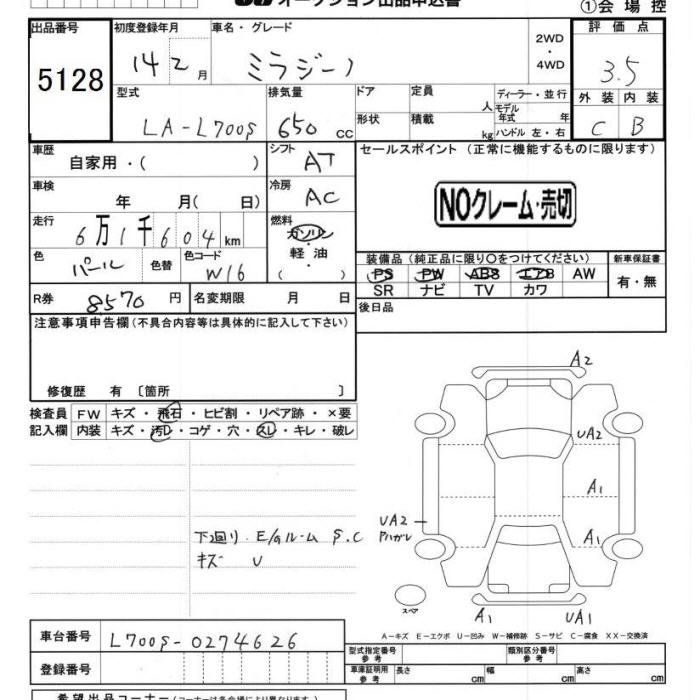 オークション出品申込書
①会場控
出品番号 初度登録年月 車名・グレード 2WD・4WD 評価点
5128 14 2月 ミラジーノ 3.5
型式 排気量 ドア 定員 人 ディーラー・並行 外装 内装
LA-L700S 650cc 形状 積載 kg モデル年式 年 ハンドル 左・右 C B
車歴 自家用・( ) シフト AT セールスポイント (正常に機能するものに限ります)
車検 年 月( 日) 冷房 AC NOクレーム・売切
走行 6万1千604km 燃料 ガソリン・軽油 ( )
色 パール 色替 色コード W16 装備品(純正品に限り○をつけてください) 新車保証書
PS PW ABS エアB AW 有・無
SR ナビ TV カワ
R券 8570円 名変期限 月 日 後日品
注意事項申告欄(不具合内容等は具体的に記入して下さい)
修復歴 有 〔箇所 〕
検査員 FW キズ・飛石・ヒビ割・リペア跡・×要
記入欄 内装 キズ・汚レ・コゲ・穴・スレ・キレ・破レ
A2
UA2
A1
UA2
A1
下回り. E/Gルーム S.C
キズ U
スペア
A1 UA1
A-キズ E-エクボ U-凹み W-補修跡 S-サビ C-腐食 XX-交換済
車台番号 L700S-0274626
型式指定番号 参考 類別区分番号 参考
登録番号 車庫証明用 参考 長さ cm 幅 cm 高さ cm
希望出品コーナー(コーナーは各会場により異なります)